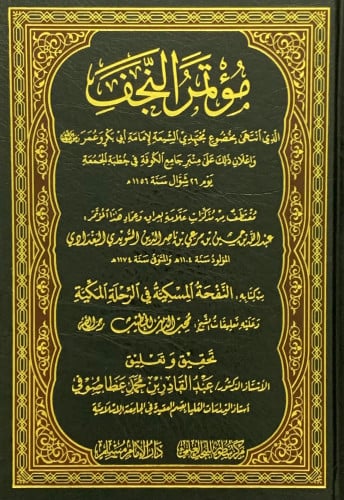 مؤتمر النجف
الذي انتهى بخضوع مجتهدي الشيعة لإمامة أبي بكر وعمر
وإعلان ذلك على منبر جامع الكوفة في خطبة الجمعة
يوم ٢٦ شوال سنة ١١٥٦ هـ
مقتطف من مذكرات علامة العراق وعماد هذا المؤتمر،
عبد الله بن حسين بن مرعي بن ناصر الدين السويدي البغدادي
المولود سنة ١١٠٤ هـ والمتوفى سنة ١١٧٤ هـ
من كتابه: النفحة المسكية في الرحلة المكية
وعليه تعليقات الشيخ: محب الدين الخطيب رحمه الله
تحقيق وتعليق
الأستاذ الدكتور/ عبد القادر بن محمد عطا صوفي
أستاذ الدراسات العليا بقسم العقيدة في الجامعة الإسلامية
دار الإمام مسلم